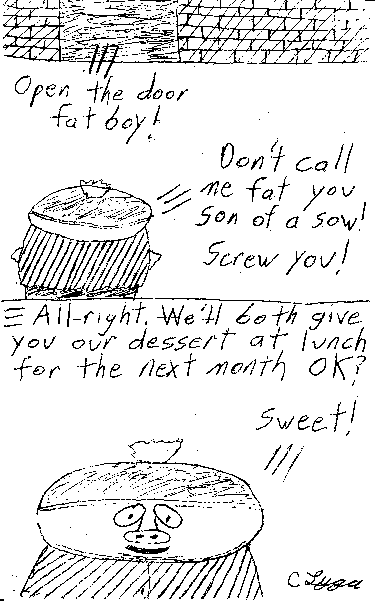 Open the door
fat boy!
Don't call
me fat you
son of a sow!
Screw you!
All-right. We'll both give
you our dessert at lunch
for the next month OK?
Sweet!
C Lyga